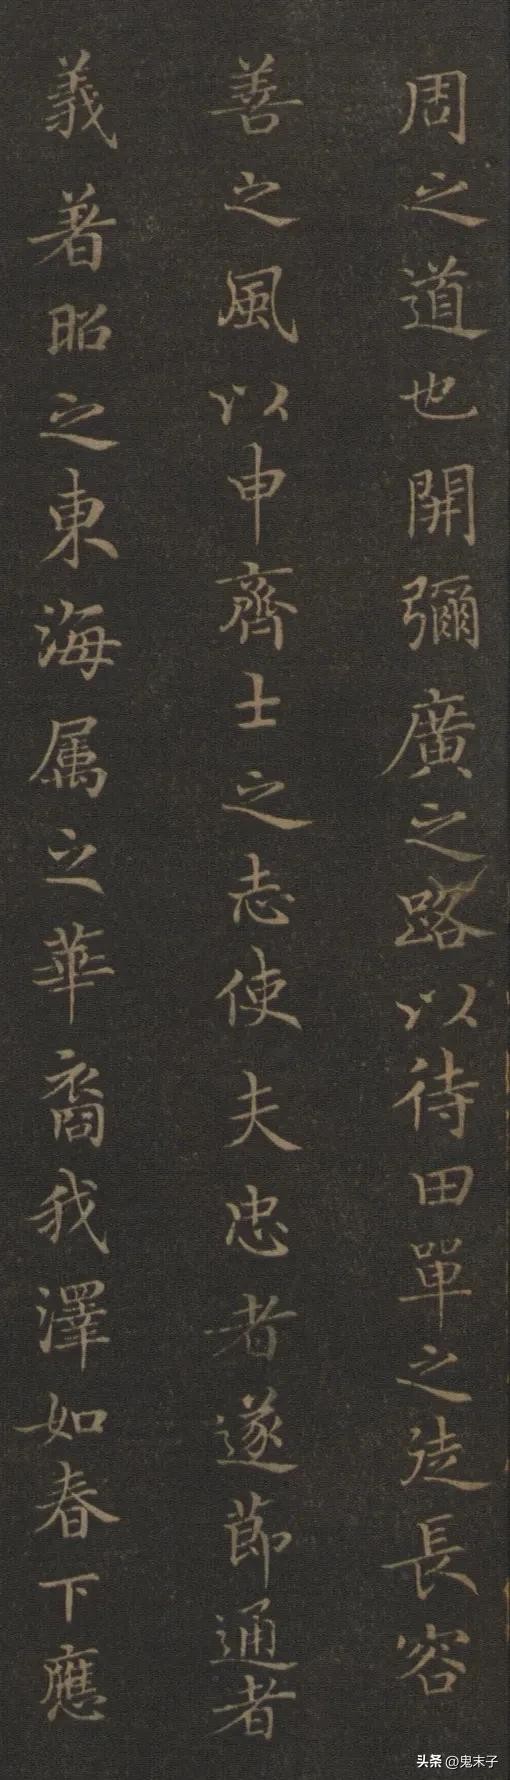 周之道也開彌廣之路以待田單之徒長容
善之風以申齊士之志使夫忠者遂節通者
義著昭之東海属之華裔我澤如春下應
头条 @鬼末子